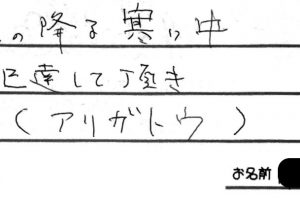 の降る寒い中
配達して頂き
(アリガトウ)
お名前